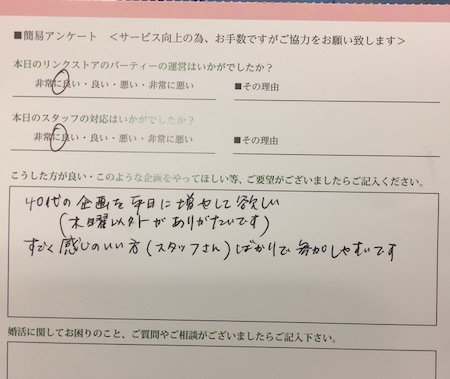 ■簡易アンケート ＜サービス向上の為、お手数ですがご協力をお願い致します＞
本日のリンクストアのパーティーの運営はいかがでしたか？
非常に良い・良い・悪い・非常に悪い ■その理由
本日のスタッフの対応はいかがでしたか？
非常に良い・良い・悪い・非常に悪い ■その理由
こうした方が良い・このような企画をやってほしい等、ご要望がございましたらご記入ください。
40代の企画を平日に増やして欲しい
(木曜以外がありがたいです)
すごく感じのいい方(スタッフさん)ばかりで参加しやすいです
婚活に関してお困りのこと、ご質問やご相談がございましたらご記入下さい。